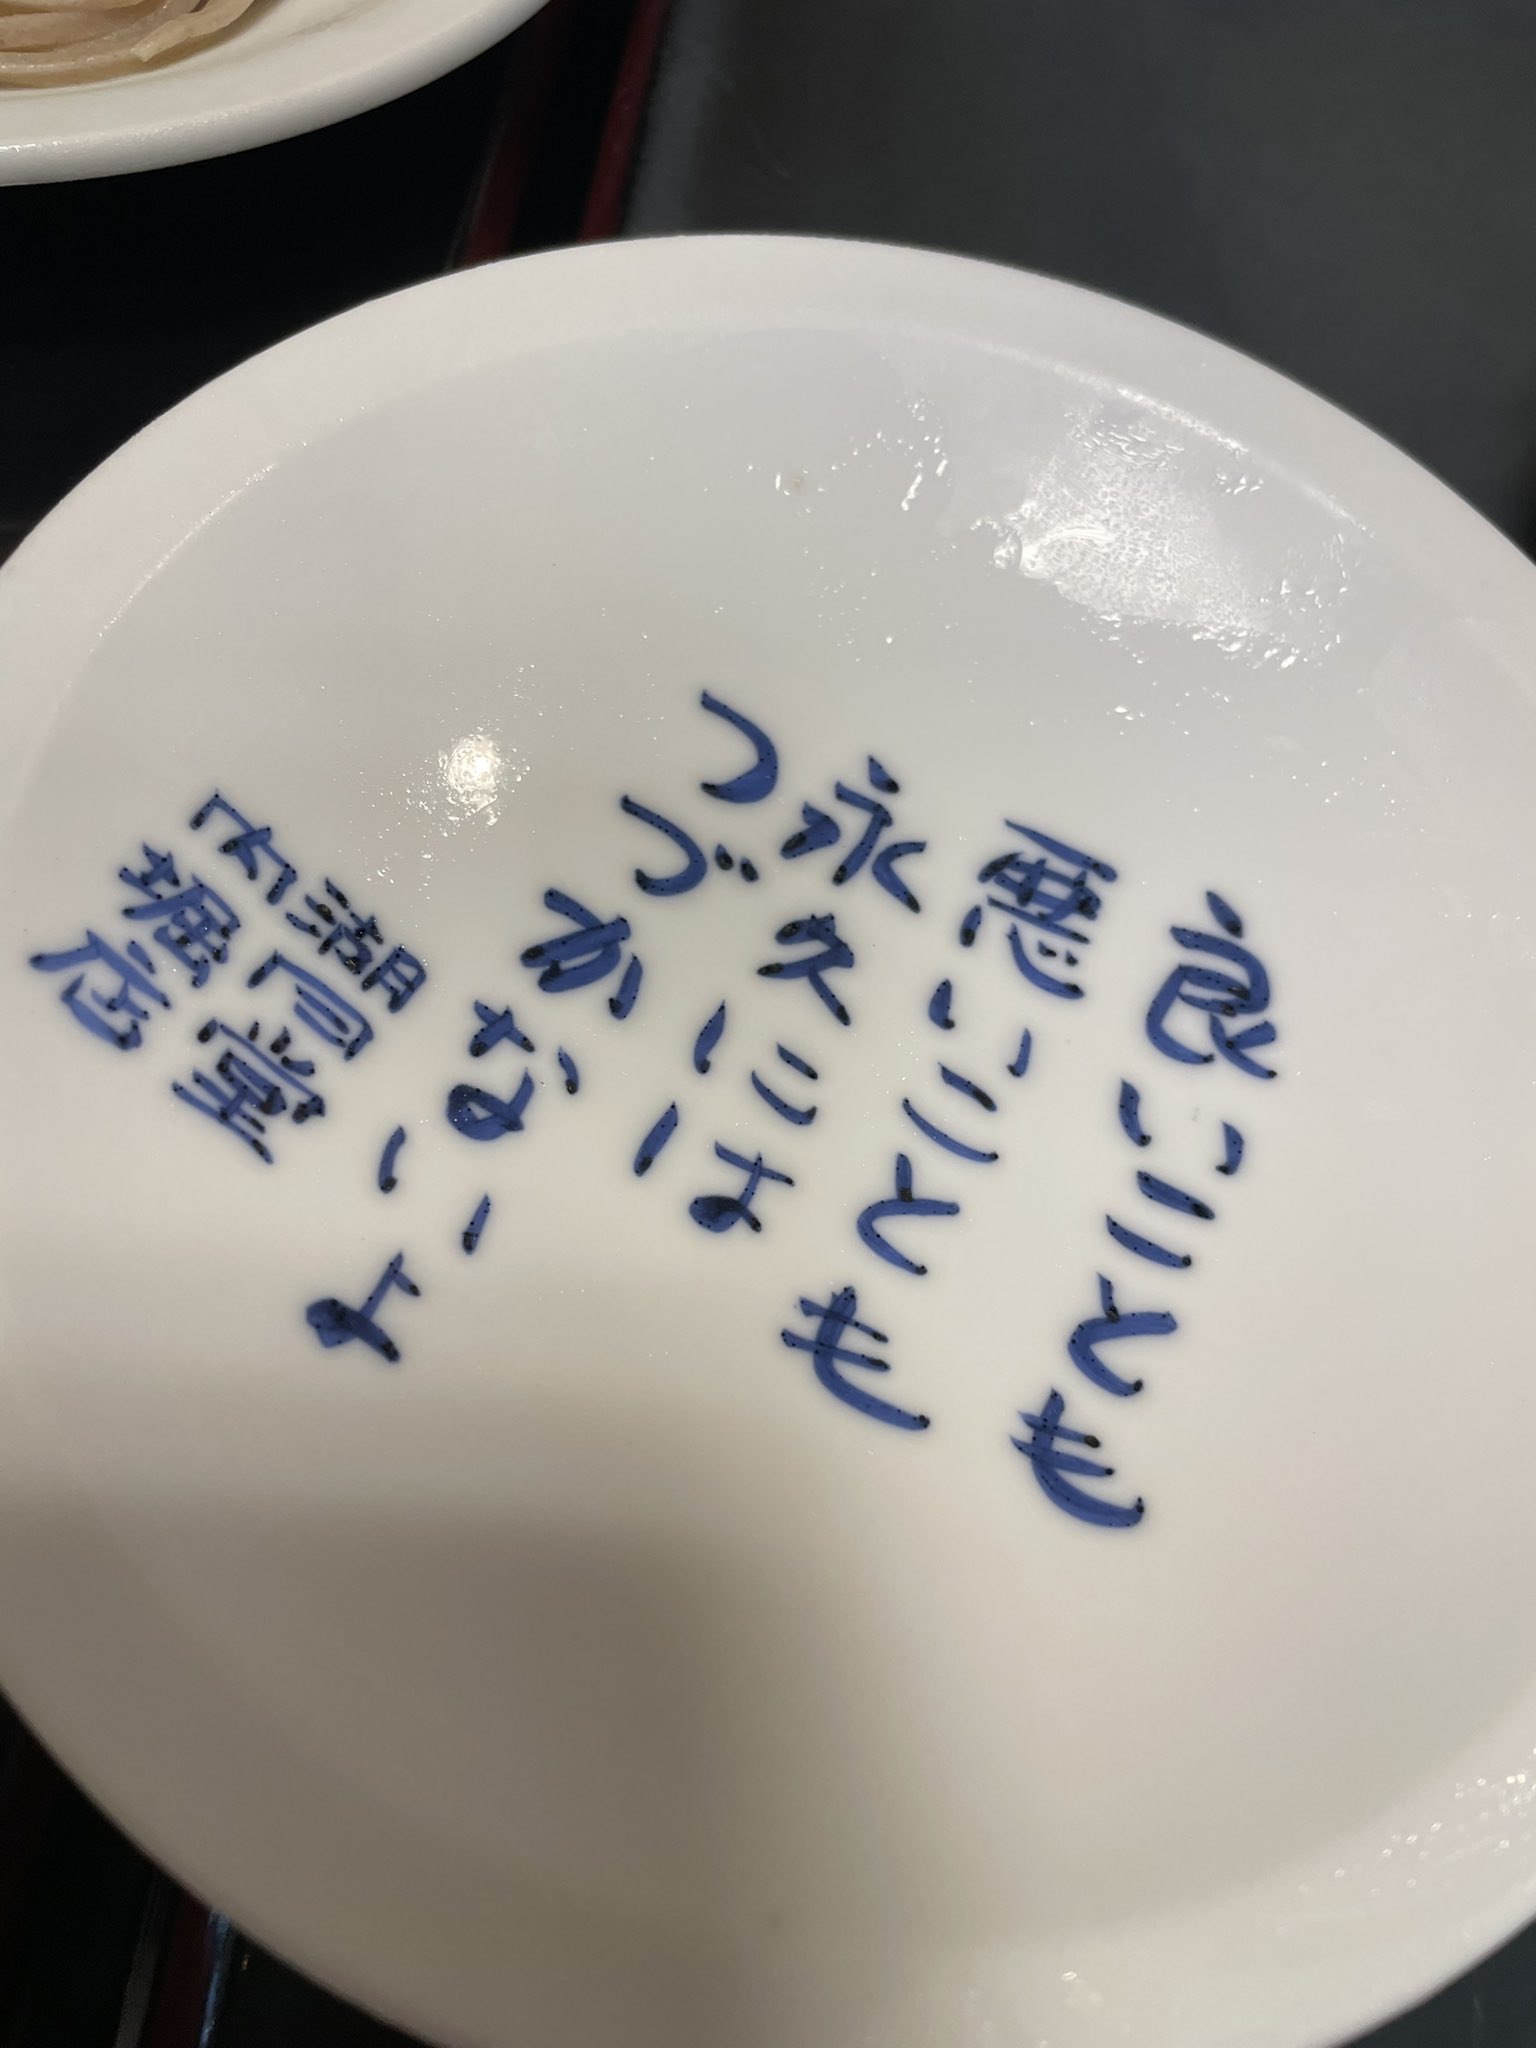 良いことも
悪いことも
永久には
つづかないよ
湖月堂
内堀店